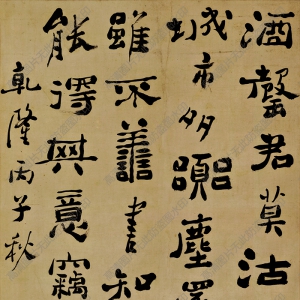 酒罄君莫沽
城市多囂塵還
雖不善書知
能得其意竊
乾隆丙子秋